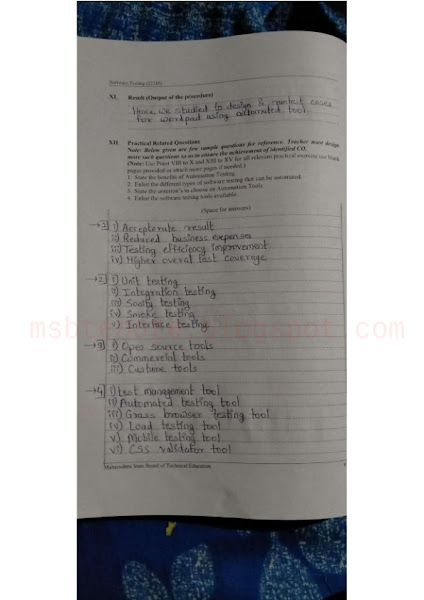 Software Testing (22518)
XI. Result (Output of the procedure)
Hence we studied to design & run test cases
for wordpad using automated tool.
XII. Practical Related Questions
Note: Below given are few sample questions for reference. Teacher must design
more such questions so as to ensure the achievement of identified CO.
(Note: Use Point VIII to X and XIII to XV for all relevant practical exercise use blank
pages provided or attach more pages if needed.)
1. State the benefits of Automation Testing.
2. Enlist the different types of software testing that can be automated.
3. State the criterion's to choose an Automation Tools.
4. Enlist the software testing tools available.
(Space for answers)
→1) i) Accepterate result
ii) Reduced business expenses
iii) Testing efficiency improvement
iv) Higher overal test coverage
→2) i) Unit testing
ii) Integration testing
iii) Sanity testing
iv) Smoke testing
v) Interface testing
→3) i) Open source tools
ii) Commercial tools
iii) Custume tools
→4) i) test management tool
ii) Automated testing tool
iii) Grass browser testing tool
iv) Load testing tool
v) Mobile testing tool
vi) CSS validator tool
Maharashtra State Board of Technical Education